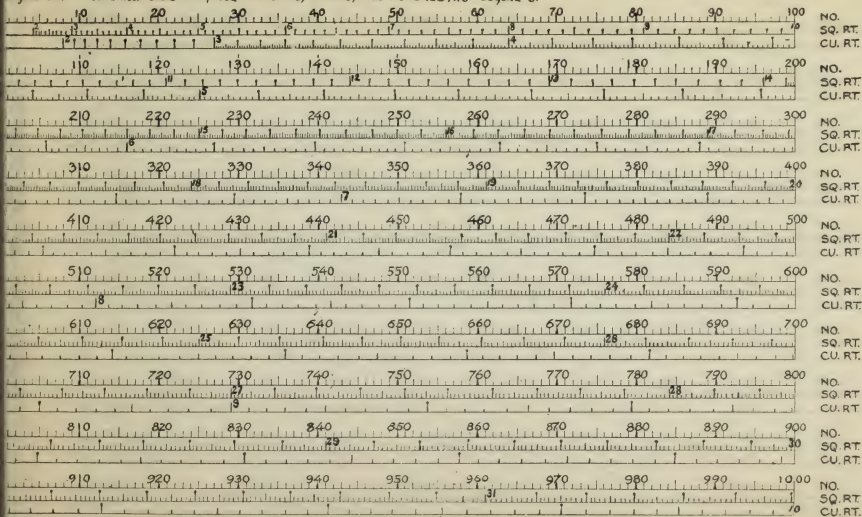 10 20 30 40 50 60 70 80 90 100 NO.
2 3 4 5 6 7 8 9 10 SQ. RT.
2 3 4 CU. RT.
110 120 130 140 150 160 170 180 190 200 NO.
11 12 13 14 SQ. RT.
5 CU. RT.
210 220 230 240 250 260 270 280 290 300 NO.
15 16 17 SQ. RT.
6 CU. RT.
310 320 330 340 350 360 370 380 390 400 NO.
18 19 20 SQ. RT.
7 CU. RT.
410 420 430 440 450 460 470 480 490 500 NO.
21 22 SQ. RT.
CU. RT
510 520 530 540 550 560 570 580 590 600 NO.
23 24 SQ. RT.
8 CU. RT.
610 620 630 640 650 660 670 680 690 700 NO.
25 26 SQ. RT.
CU. RT.
710 720 730 740 750 760 770 780 790 800 NO.
27 28 SQ. RT
9 CU. RT.
810 820 830 840 850 860 870 880 890 900 NO.
29 30 SQ. RT.
CU. RT.
910 920 930 940 950 960 970 980 990 1000 NO.
31 SQ. RT.
10 CU. RT.